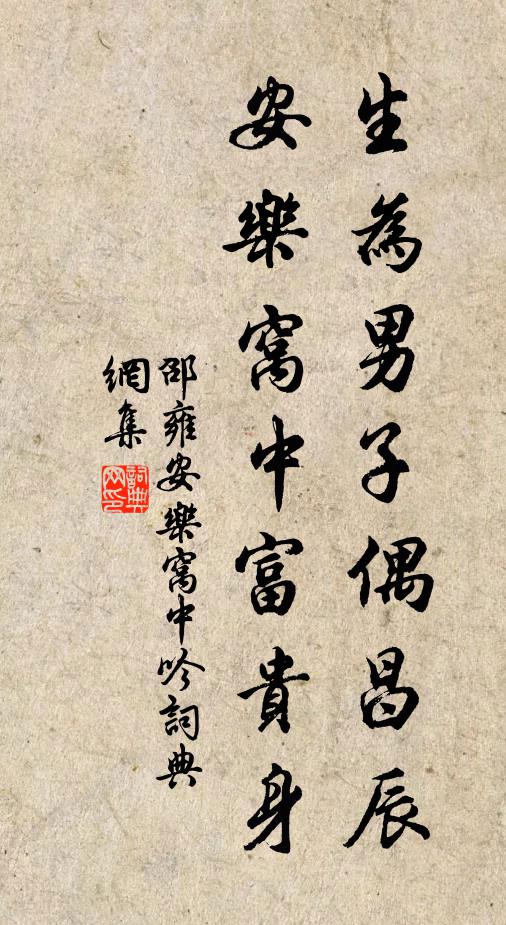 生為男子偶昌辰
安樂窩中富貴身
邵雍安樂窩中吟詞典
網集
詞典
网印